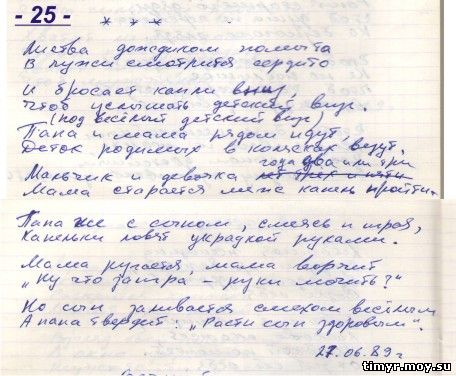 - 25 -
* * *
Листва дождиком помыта
В лужи смотрится сердито
И бросает капли вниз,
Чтоб услышать детский визг.
(под весёлый детский визг)
Папа и мама рядом идут,
Деток родимых в колясках везут.
года два или три
Мальчик и девочка лет трех и пяти
Мама старается меж капель пройти.
Папа же с сыном, смеясь и играя,
Капельки ловят украдкой руками.
Мама ругается, мама ворчит
"Ну что за игра - руки мочить?"
Но сын заливается смехом весёлым
А папа твердит: "Расти сын здоровым".
27.06.89г
timyr.moy.su